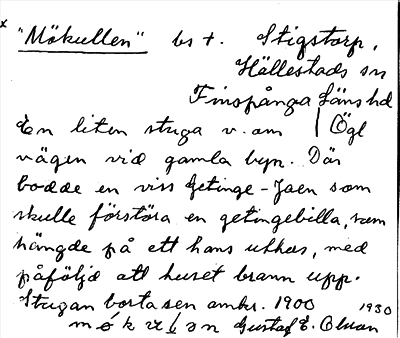 x
"Mökullen" bs t. Stigstorp,
Hällestads sn
Finspånga läns hd
Ögl
En liten stuga v. om
vägen vid gamla byn. Där
bodde en viss Getinge-Jaen som
skulle förstöra en getingebilla, som
hängde på ett hans uthus, med
påföljd att huset brann upp.
Stugan borta sen omkr. 1900
1930
Gustaf E. Olsson